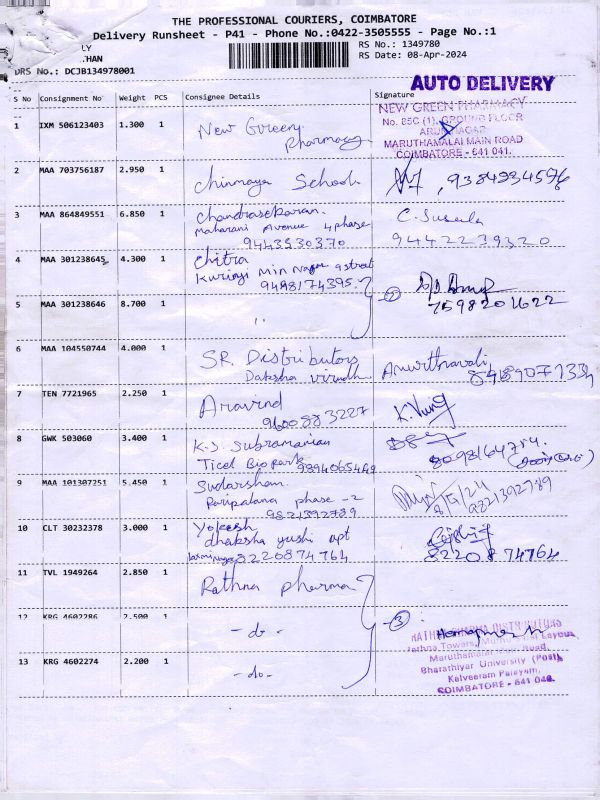 THE PROFESSIONAL COURIERS, COIMBATORE
Delivery Runsheet - P41 - Phone No.:0422-3505555 - Page No.:1
LY
RS No.: 1349780
THAN
RS Date: 08-Apr-2024
DRS No.: DCJB134978001
AUTO DELIVERY
S No Consignment No Weight PCS Consignee Details Signature
1 IXM 506123403 1.300 1 New Green Pharmacy
NEW GREEN PHARMACY
No. 85C (1), GROUND FLOOR
ARUL NAGAR
MARUTHAMALAI MAIN ROAD
COIMBATORE - 641 041.
2 MAA 703756187 2.950 1 Chinmaya School , 9384934596
3 MAA 864849551 6.850 1 Chandrasekaran. C. Suseela
Maharani Avenue 4 phase
9443530370 9442239320
4 MAA 301238645 4.300 1 Chitra
Kurinji Min Nagar 9 street
9498174395 2
5 MAA 301238646 8.700 1 " 7598201622
6 MAA 104550744 4.000 1 SR. Distributors
Daksha
7 TEN 7721965 2.250 1 Aravind
9600883227
8 GWK 503060 3.400 1 K.S. Subramanian
Ticel Bio park 9894065469 8098164754.
9 MAA 101307251 5.450 1 Sudarshan.
Paripalana phase -2
9821392789 9821392789
10 CLT 30232378 3.000 1 Yogeesh
dhaksha yushi apt
8220874764 8220874764
11 TVL 1949264 2.850 1 Rathna pharma
12 KRG 4602286 2.500 1 - do - 3
13 KRG 4602274 2.200 1 - do -
RATHNA PHARMA DISTRIBUTORS
Maruthamalai Main Road,
Bharathiyar University (Post),
Kalveeram Palayam,
COIMBATORE - 641 046.